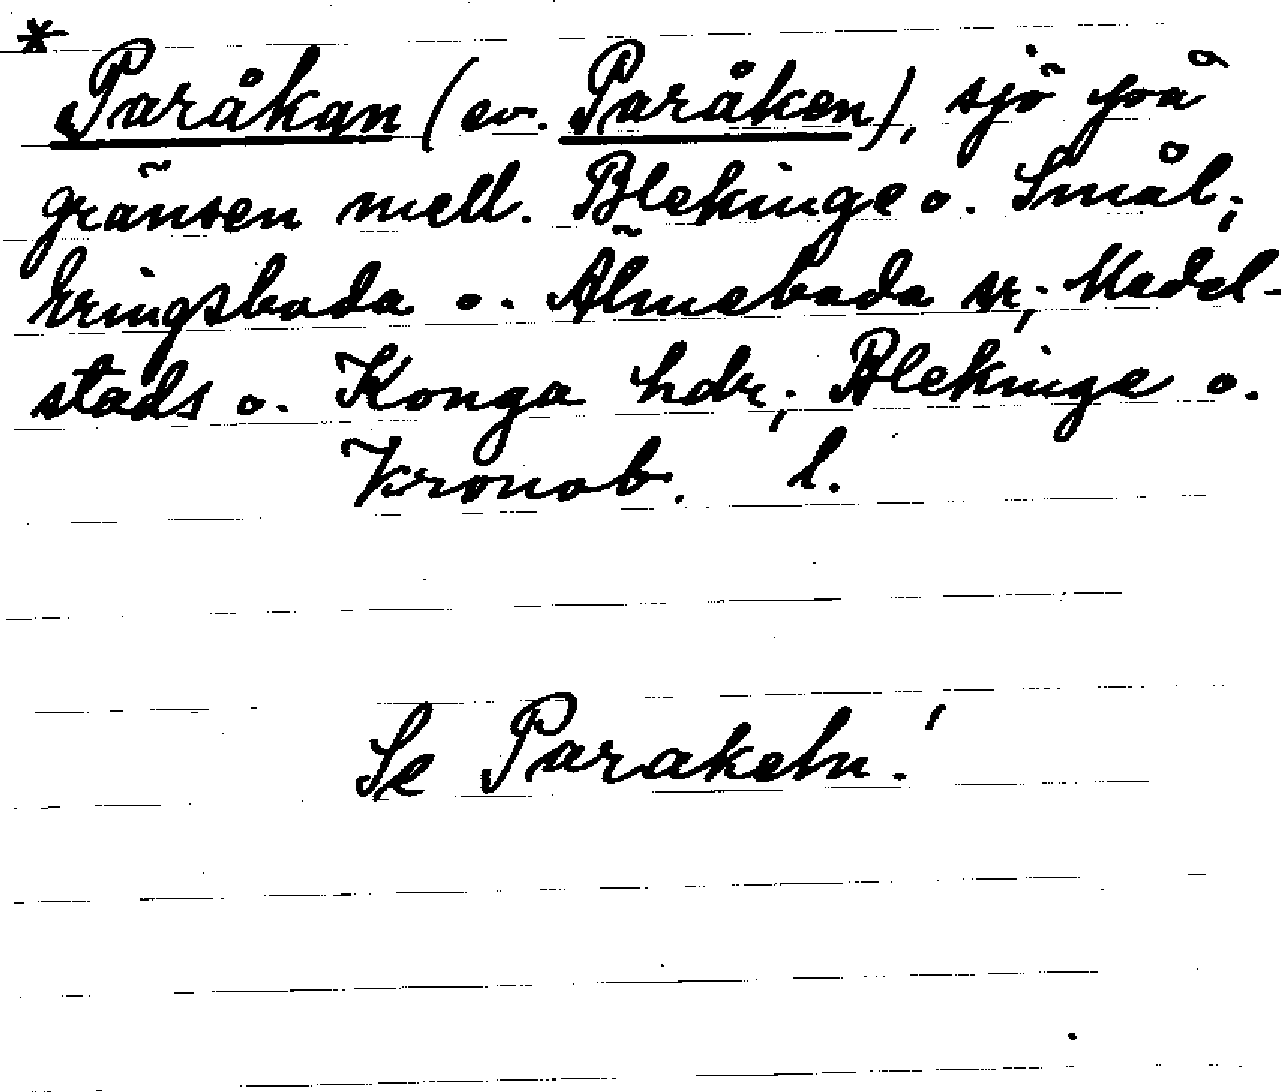 * Paråkan (ev. Paråken), sjö på
gränsen mell. Blekinge o. Smål.;
Eringsboda o. Älmeboda sr; Medel-
stads o. Konga hdr; Blekinge o.
Kronob. l.
Se Parakeln!